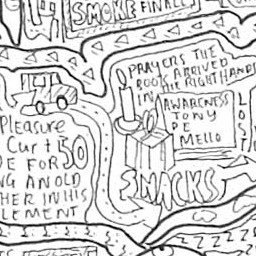 SMOKE FINALL
PRAYERS THE
BOOKS ARRIVED
IN THE RIGHT HANDS
AWARENESS
TONY
DE
MELLO
LOST
Pleasure
Curt
50
E FOR
NG AN OLD
HER IN HIS
ELEMENT
SNACKS
ZZZZZZ